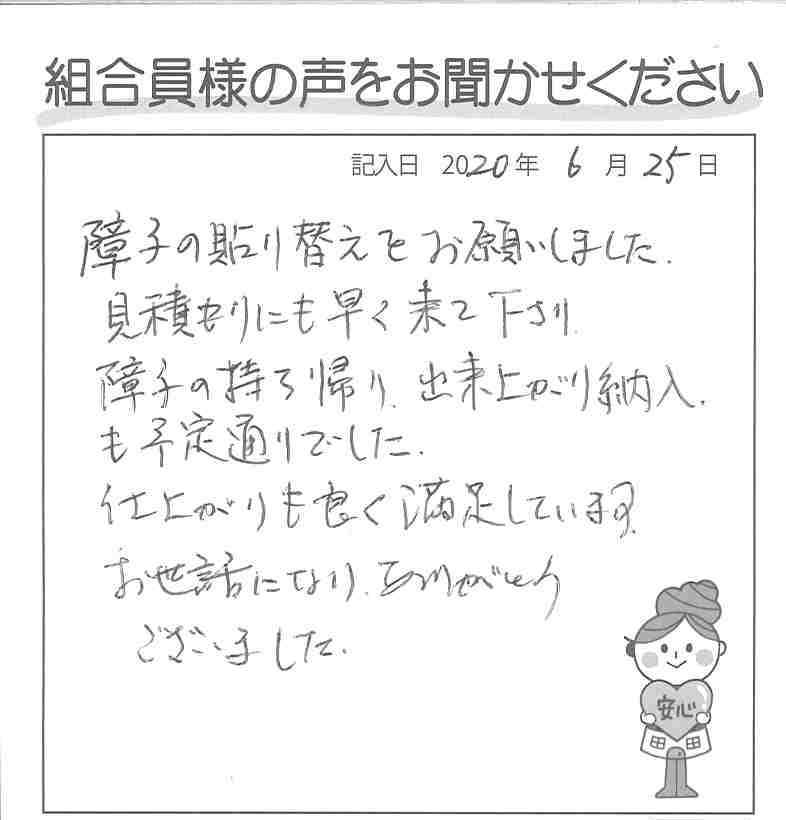 組合員様の声をお聞かせください
記入日 2020年 6月 25日
障子の貼り替えをお願いしました.
見積もりにも早く来て下さり.
障子の持ち帰り. 出来上がり納入.
も予定通りでした.
仕上がりも良く満足しています.
お世話になり. ありがとう
ございました.
安心